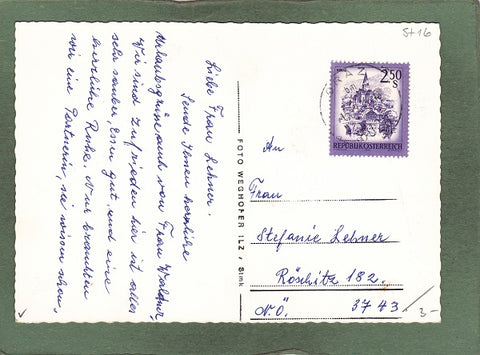 St 16
Liebe Frau Lehner.
Sende Ihnen herzliche
Urlaubsgrüße auch von Frau
Wir sind zufrieden hier ist alles
sehr sauber, Essen gut, und eine
herrliche Ruhe. Nur brauchten
wir eine Partnerin, sie wissen schon,
FOTO WEGHOFER ILZ, Stmk
2.50
S
REPUBLIK ÖSTERREICH
An
Frau
Stefanie Lehner
Röschitz 182.
N.Ö. 3743
3-